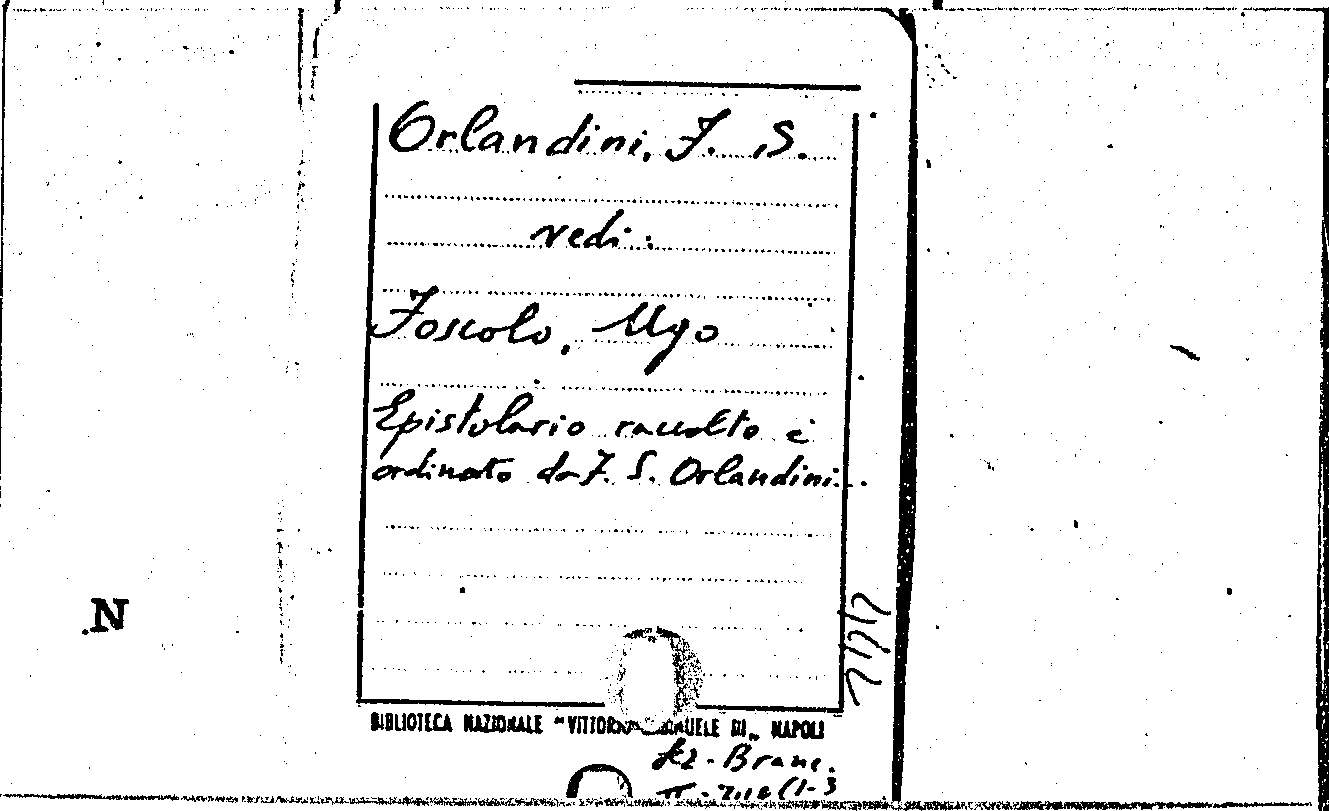 Orlandini, F. S.
vedi:
Foscolo, Ugo
Epistolario raccolto e
ordinato da F. S. Orlandini...
N
BIBLIOTECA NAZIONALE "VITTORIO EMANUELE III" NAPOLI
Sz-Branc.